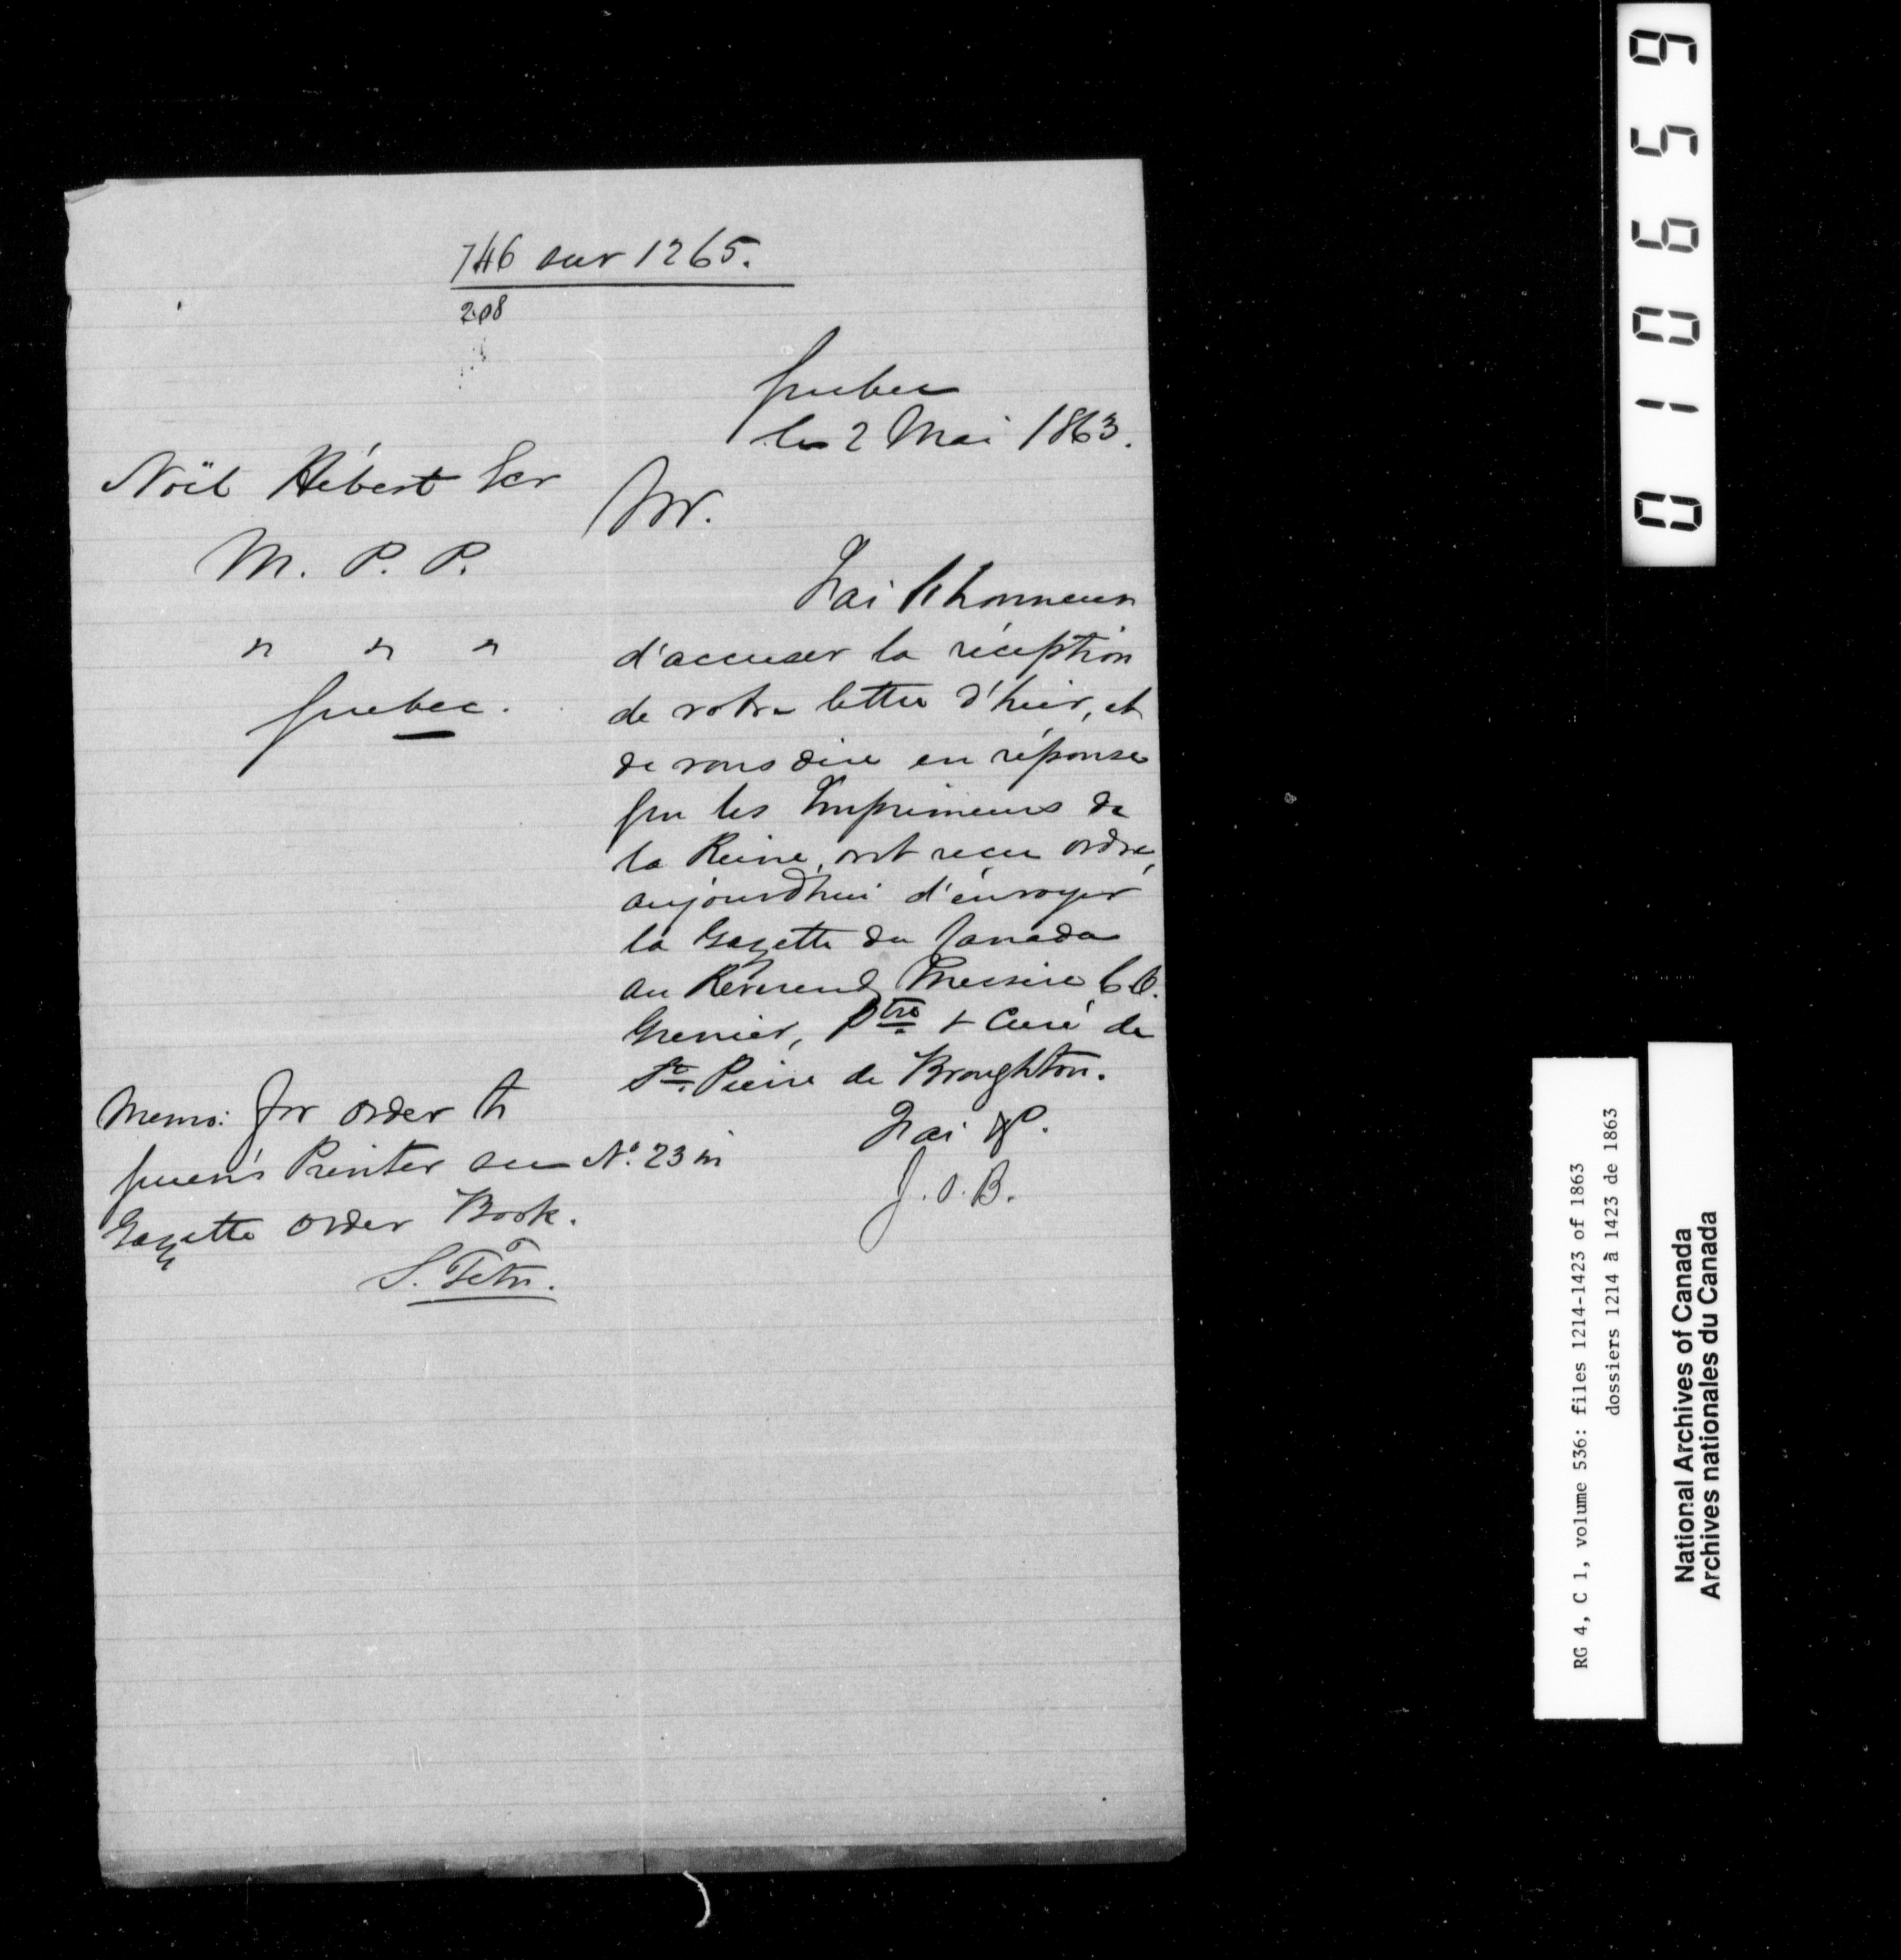 746 sur 1265.
208
Quebec
le 2 Mai 1863.
Noël Hébert Ecr
M. P. P.
" " "
Quebec.
Mr.
J'ai l'honneur
d'accuser la réception
de votre lettre d'hier, et
de vous dire en réponse
que les Imprimeurs de
la Reine, ont recu ordre,
aujourd'hui d'envoyer
la Gazette du Canada
au Révérend Messire
Grenier, Ptre & Curé de
St. Pierre de Broughton.
J'ai &c.
J. O. B.
Memo: for order to
Queen's Printer see No. 23 in
Gazette order Book.
010659
RG 4, C 1, volume 536: files 1214-1423 of 1863
dossiers 1214 à 1423 de 1863
National Archives of Canada
Archives nationales du Canada